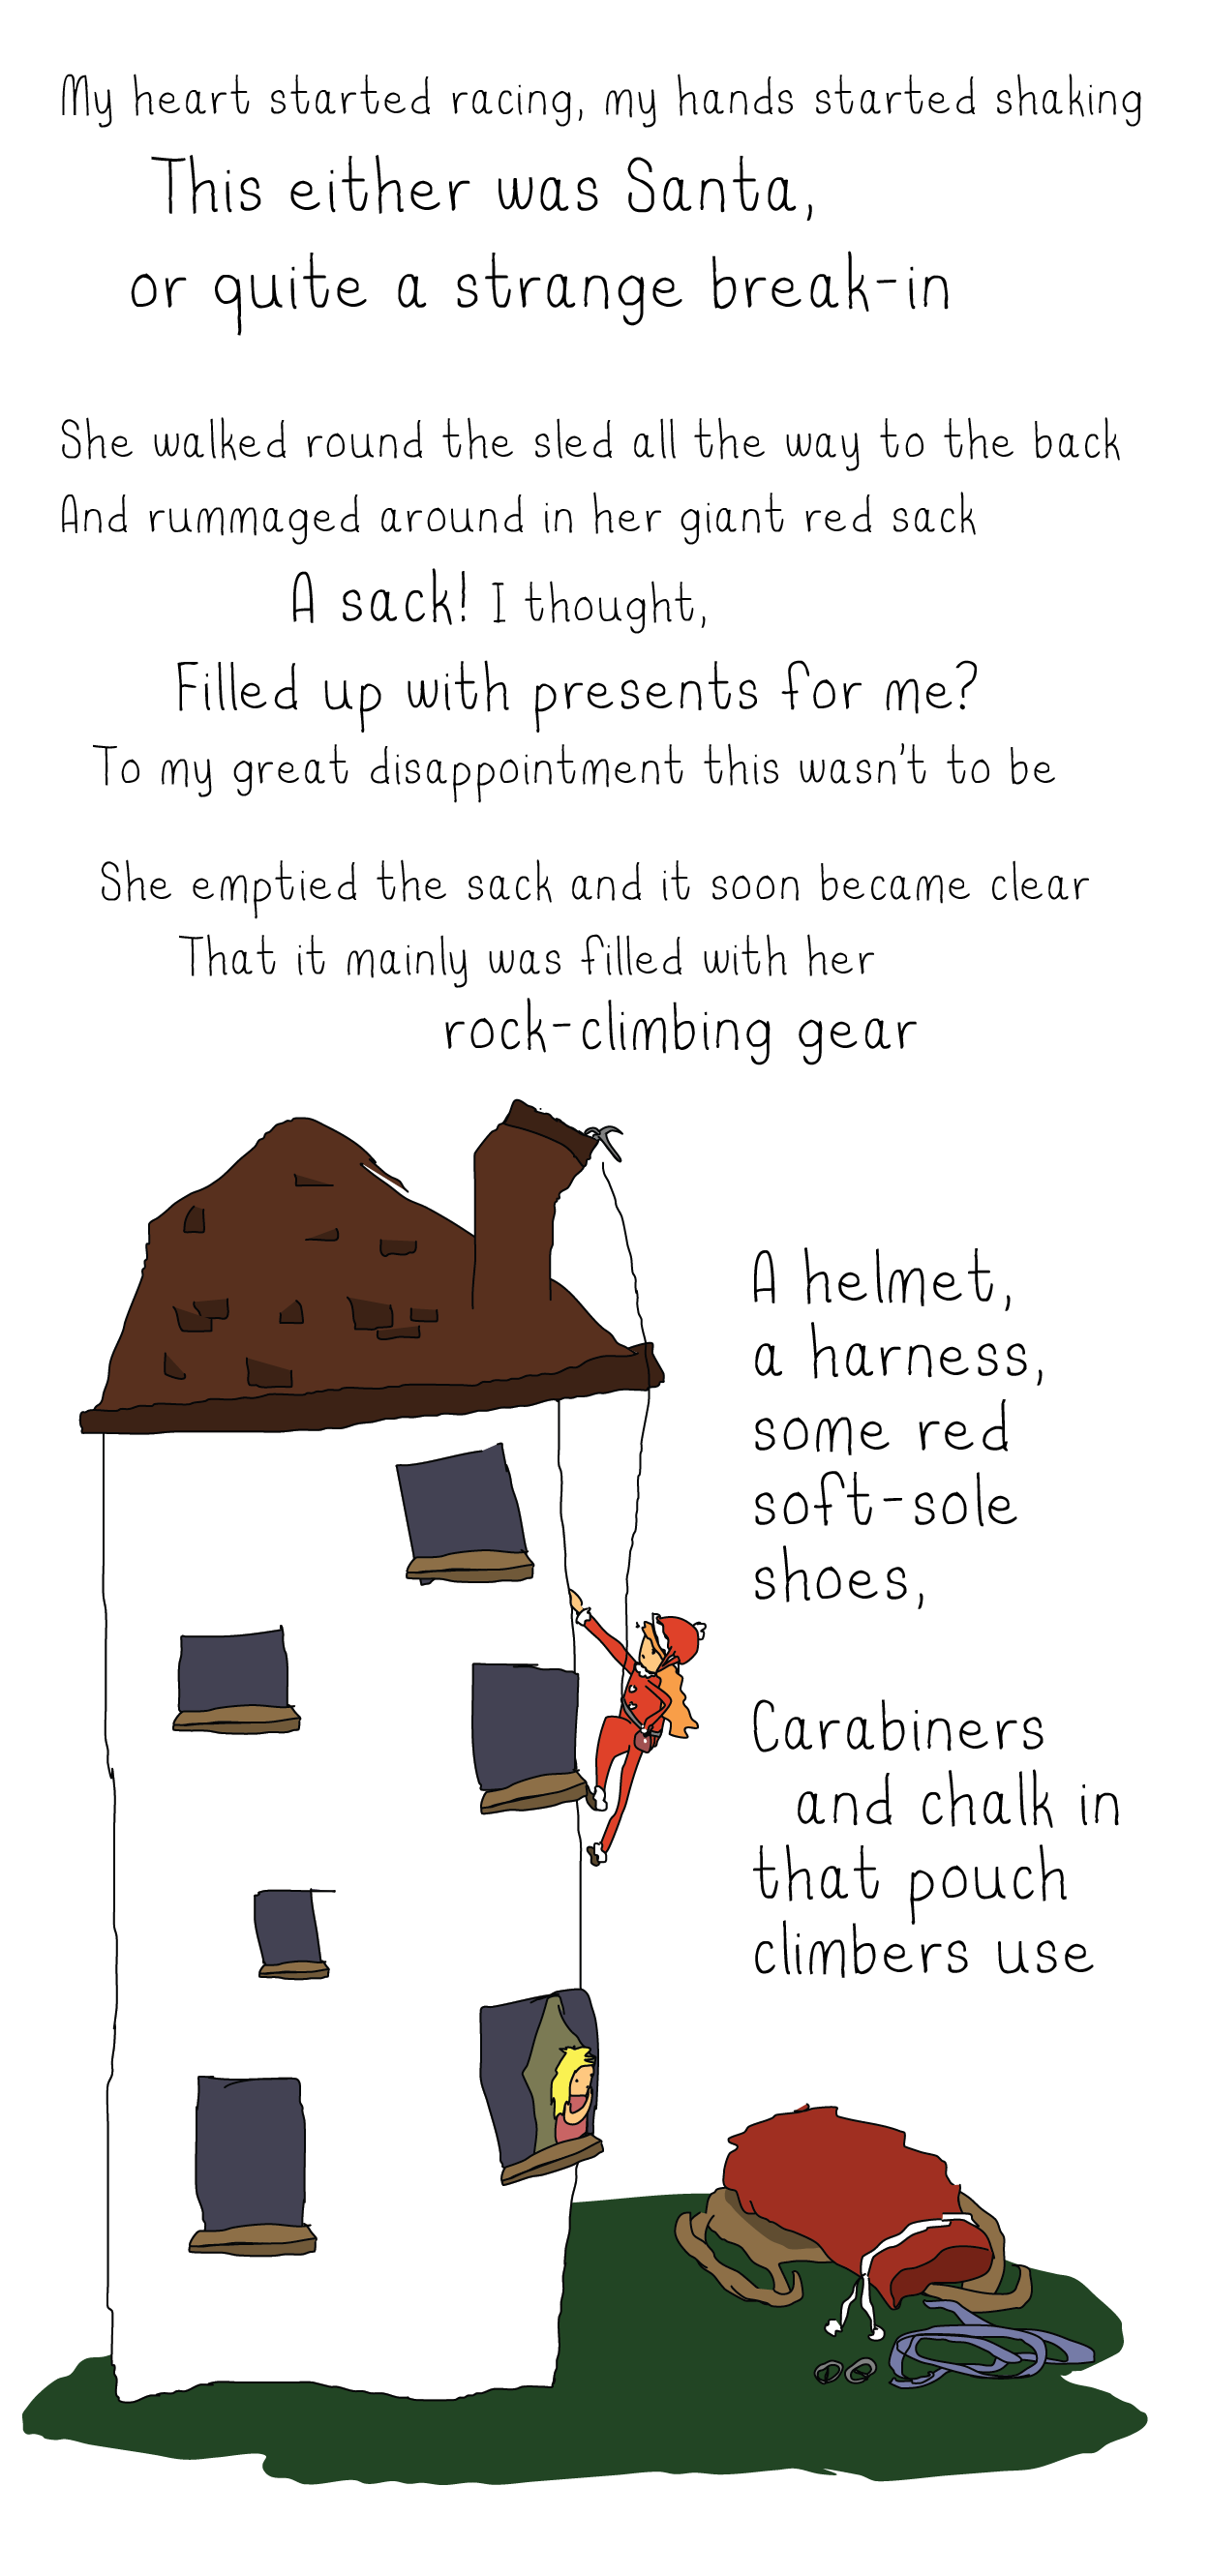 My heart started racing, my hands started shaking
This either was Santa,
or quite a strange break-in
She walked round the sled all the way to the back
And rummaged around in her giant red sack
A sack! I thought,
Filled up with presents for me?
To my great disappointment this wasn't to be
She emptied the sack and it soon became clear
That it mainly was filled with her
rock-climbing gear
A helmet,
a harness,
some red
soft-sole
shoes,
Carabiners
and chalk in
that pouch
climbers use